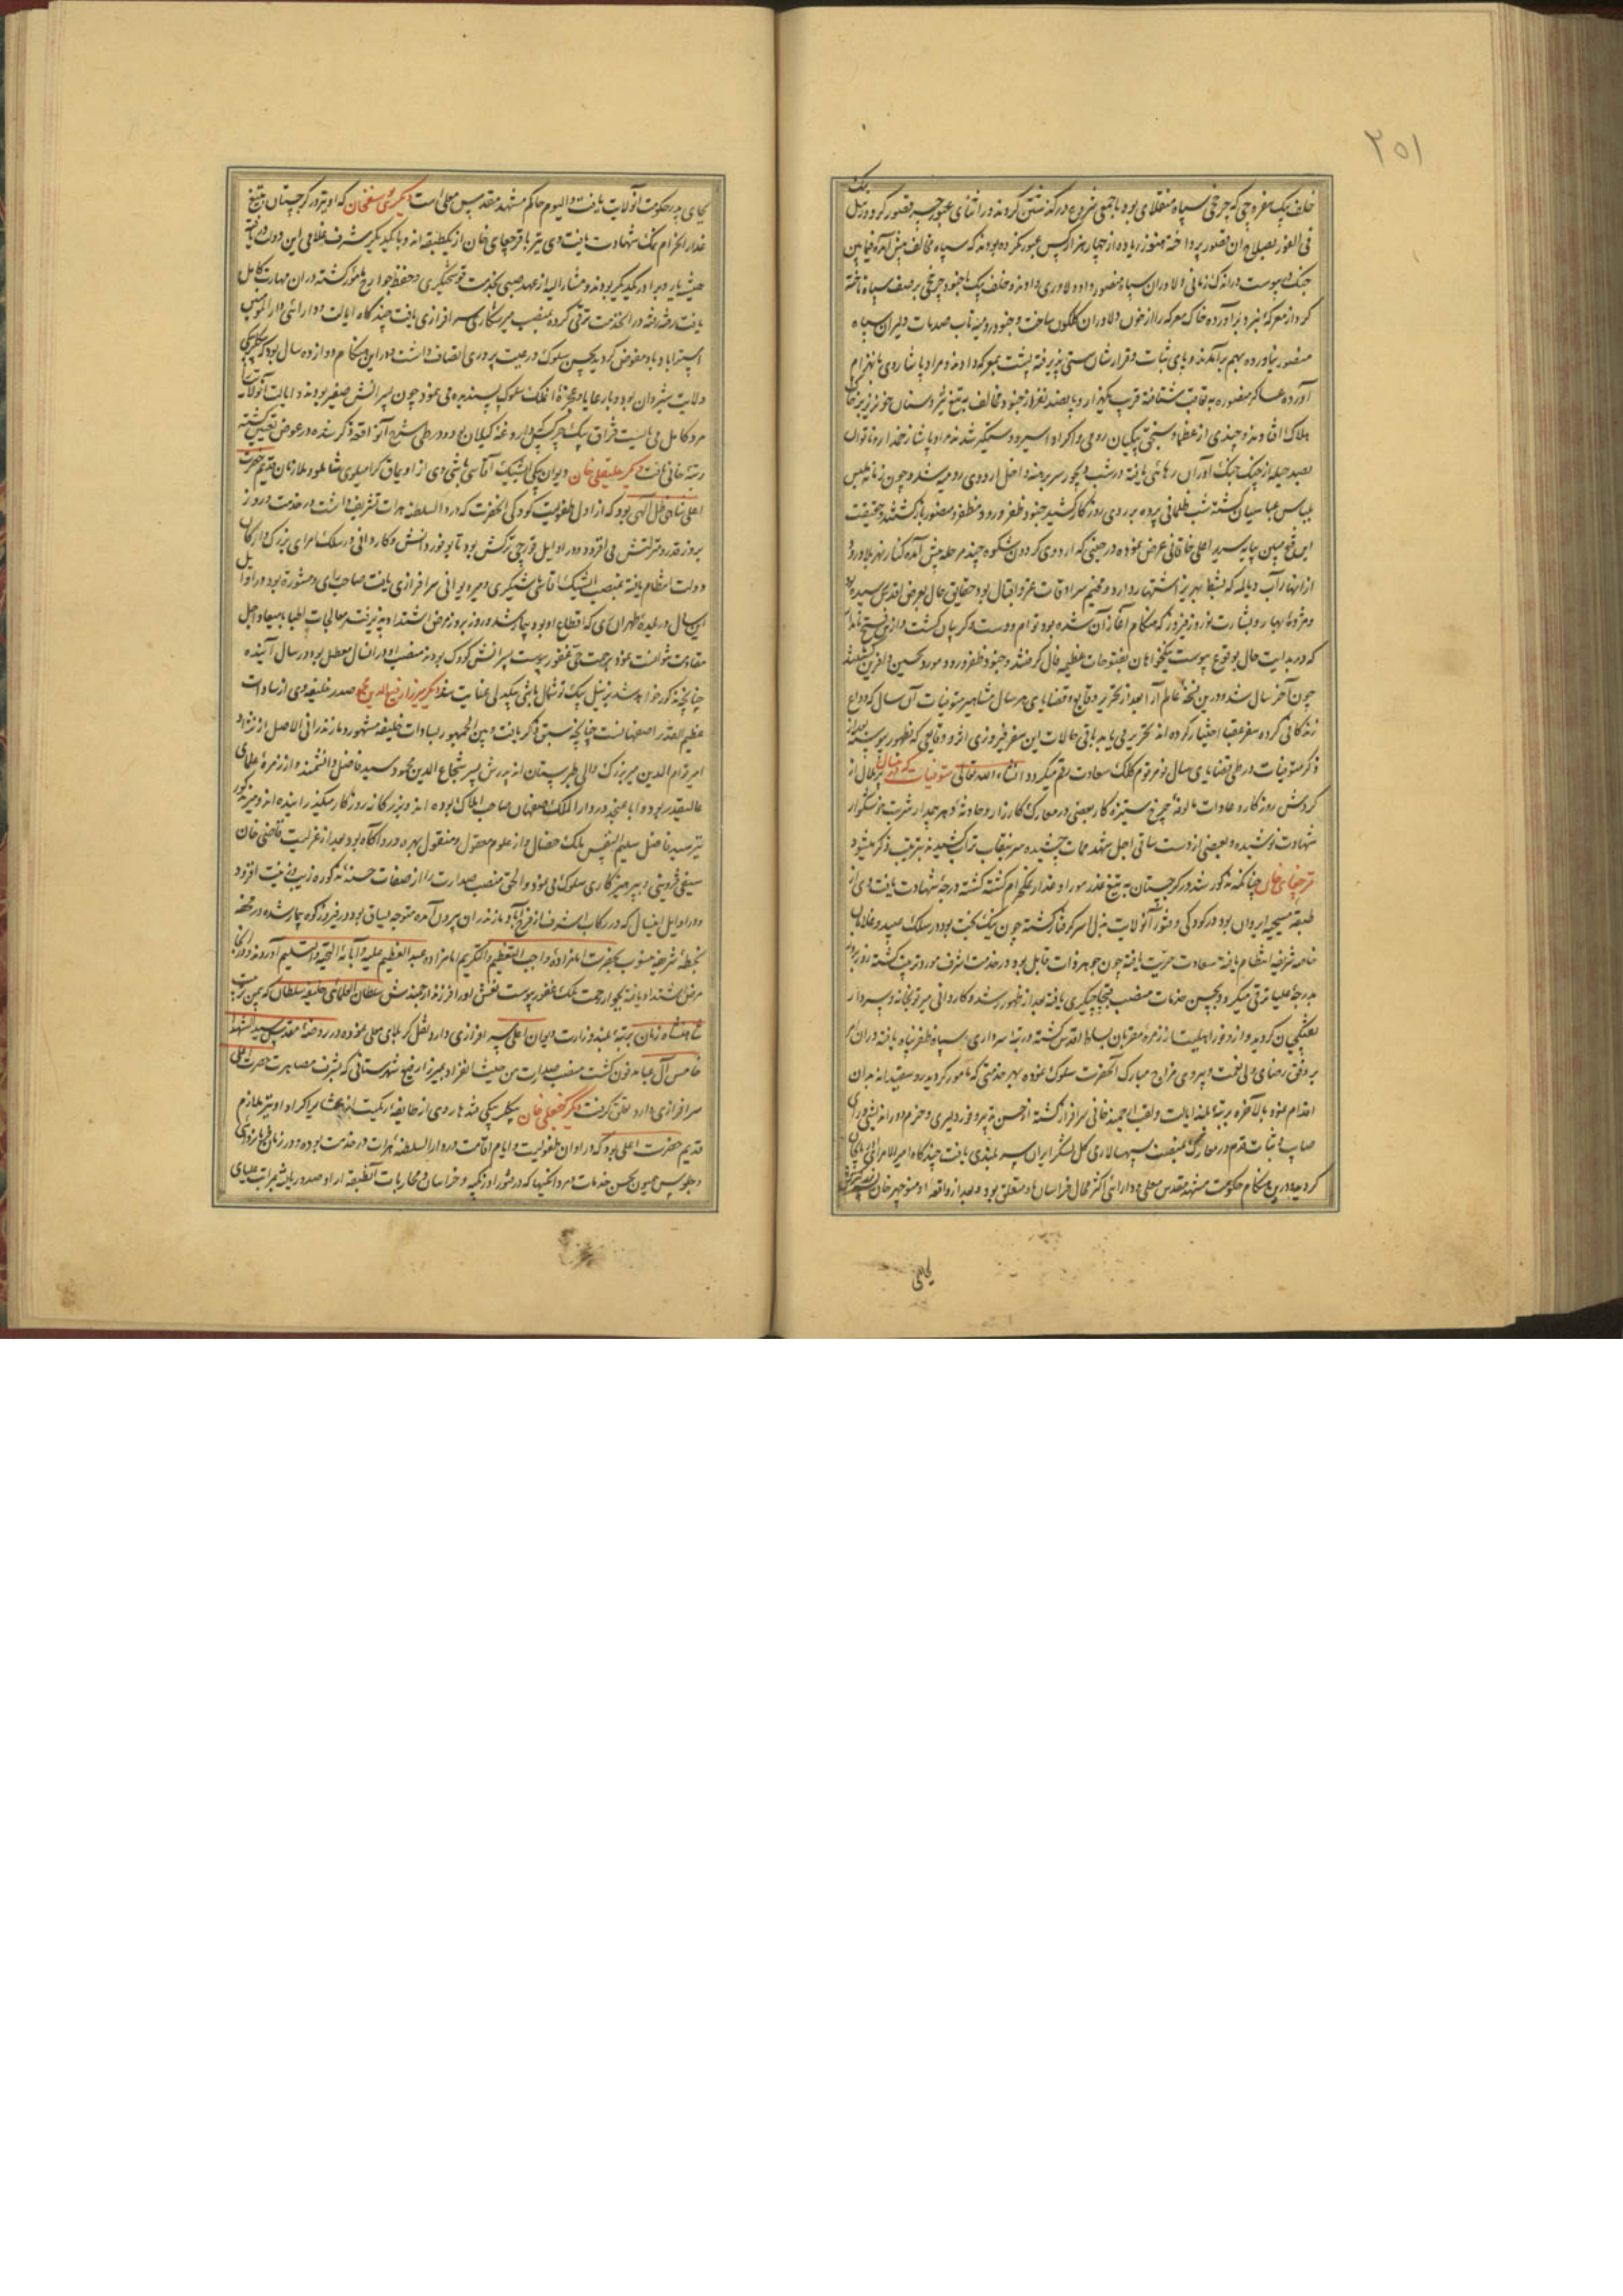 ۲۵۱
بیک
خلف بیک سفره‌چی که چرخچی سپاه منقلای بود با جمعی شروع در گذشتن کردند در اثنای عبور جسر قصور کرد و در پل
فی الفور بصلاح آن قصور پرداخته هنوز زیاده از چهار هزار کس عبور نکرده بودند که سپاه مخالف پیش آمده فیمابین
جنک پیوست در اندک زمانی دلاوران سپاه منصور داد دلاوری دادند و خلف بیک با جنود چرخچی بر صف سپاه تاخته
کرد از معرکه نبرد برآورده خاک معرکه را از خون دلاوران گلگون ساخت و جنود رومیه تاب صدمات دلیران سپاه
منصور نیاورده بهم برآمدند و پای ثبات و قرارشان سستی پذیرفته پشت بمعرکه دادند و مراد پاشا روی بانهزام
آورده عساکر منصوره به تعاقب شتافته قریب یکهزار و پانصد نفر از جنود مخالف به تیغ
هلاک افتادند و چندی از عظما و سنجق بیکیان رومی و اکراد اسیر و دستگیر شدند مراد پاشا
بصد حیله از چنک جنک آوران رهائی یافته در شب دیجور سر برهنه داخل اردوی رومیه شد و چون زمانه ملبس
بلباس عباسیان گشته شب ظلمانی پرده بر روی روزگار کشید جنود ظفر ورود مظفر و منصور بازگشتند و حقیقت
این فتح مبین بپایه سریر اعلی خاقانی عرض نمودند در حینی که اردوی گردون شکوه چند مرحله پیش آمده کنار نهر بلادرود
از انهار آب دیاله که بشط نهریز اشتهار دارد مخیم سرادقات عز و اقبال بود حقایق حال بعرض اقدس رسیده
و مژده بهار و بشارت نوروز فیروز که هنگام آغاز آن شده بود توام
که در بدایت حال بوقوع پیوست نیکخواهان بفتوحات عظیمه فال گرفتند و جنود ظفر ورود مورد تحسین و آفرین گشتند
چون آخر سال شد و درین نسخه عالم آرا بعد از تحریر وقایع و قضایای هر سال مشاهیر متوفیات آن سال که وداع
زندگانی کرده سفر عقبا اختیار کرده‌اند بتحریر می‌یابد باقی حالات این سفر فیروزی اثر و وقایعی که بظهور پیوسته بعد از
ذکر متوفیات در طی قضایای سال نو مرقوم کلک سعادت رقم میگردد انشاء الله تعالی متوفیات
گردش روزگار و عادات مالوفه چرخ ستیزه کار بعضی در معارک کارزار و حادثه دهر جدار شربت خوشگوار
شهادت نوشیده و بعضی از دست ساقی اجل شهد ممات چشیده سر بنقاب تراب کشیدند بترتیب ذکر میشود
قرچقای خان چنانکه مذکور شد در گرجستان به تیغ غدر موراو غدار نمکحرام کشته گشته درجه شهادت یافت وی از
طبقه مسیحیه ایروان بود در کودکی و فتور آنولایت بذل اسر گرفتار گشته چون نیک بخت بود در سلک عبید و غلامان
خاصه شریفه انتظام یافته سعادت حریت یافته چون جوهر ذات قابل بود در خدمت اشرف مورد تربیت گشته روز بروز
بدرجه علیا ترقی میکرد و بحسن خدمات منصب قیچاچیگری یافته بعد از ظهور رشد و کاردانی میر توپخانه و سردار
تفنگچیان گردید و از وفور اهلیت از زمره مقربان بساط اقدس گشته و رتبه سرداری سپاه ظفر پناه یافته در آن امر
بر وفق رضای ولی نعمت و پیروی مزاج مبارک آنحضرت سلوک نموده بهر خدمتی که مامور گردید رو سفیدانه بدان
اقدام نمود بالاخره برتبه بلند ایالت و لقب ارجمند خانی سرافراز گشته از حسن تدبیر و فور دلیری و حزم و دوراندیشی و رای
صایب و ثبات قدم در معارک بمنصب سپهسالاری کل لشکر ایران سربلندی یافت چندگاه امیرالامرای آذربایجان
گردید و درین هنگام حکومت مشهد مقدس معلی و دارائی اکثر محال خراسان باو متعلق بود و بعد از واقعه او منوچهر خان
بجای
بجای پدر حکومت آنولایت یافت و الیوم حاکم مشهد مقدس معلی است دیگر یوسفخان که او نیز در گرجستان به تیغ
غدار الحرام نمک شهادت یافت وی نیز با قرچقای خان از یکطبقه‌اند و با یکدیگر بشرف غلامی این دودمان
همیشه یار و برادر یکدیگر بودند و مشارالیه از عهد صبی بخدمت قوشچیگری و حفظ جوارح مامور گشته در آن مهارت کامل
یافت رفته رفته در آن خدمت ترقی کرده بمنصب میرشکاری سرافرازی یافت چندگاه ایالت و دارائی دارالمؤمنین
استرآباد باو مفوض گردید بحسن سلوک و رعیت پروری اتصاف داشت و در این هنگام دوازده سال بود که بیگلربیگی
ولایت شیروان بود و با رعایا و عجزه آن ملک سلوک پسندیده می‌نمود چون پسرانش صغیر بودند و ایالت آنولایت
مرد کامل می‌بایست قزاق بیک چرکس داروغه گیلان بود و در طی شرح آنواقعه ذکر شده در عوض تعیین گشته
رتبه خانی یافت دیگر علیقلی خان دیوان بیگی ایشیک آقاسی باشی وی از اویماق گرامیلوی شاملو و ملازمان قدیم حضرت
اعلی شاهی ظل اللهی بود که از اول طفولیت کودکی آنحضرت که در دارالسلطنه هرات تشریف داشت در خدمت روز
بروز قدر و منزلتش می‌افزود در اوایل قورچی ترکش بود تا بوفور دانش و کاردانی در سلک امرای بزرگ و ارکان
دولت انتظام یافته بمنصب ایشیک آقاسی باشیگری و میر دیوانی سرافرازی یافت صاحب رای و مشوره بود در اوایل
این سال در بلده طهران ری که اقطاع او بود بیمار شده روز بروز مرض اشتداد پذیرفت معالجات اطبا با میعاد اجل
مقاومت نتوانست نمود برحمت حی غفور پیوست پسرانش کودک بودند منصب او در آن سال معطل بود در سال آینده
چنانچه مذکور خواهد شد بزینل بیک توشمال باشی بیگدلی عنایت شد دیگر میرزا رضی الدین محمد صدر خلیفه وی از سادات
عظیم القدر اصفهانست چنانچه سبق ذکر یافت و بین الجمهور بسادات خلیفه مشهور و مازندرانی الاصل از نژاد
امیر قوام الدین میر بزرگ والی طبرستان‌اند پدرش میر شجاع الدین محمود سید فاضل دانشمند و از زمره علمای
عالیقدر بود و ابا عن جد در دارالملک اصفهان صاحب املاک بوده‌اند و بزرگانه روزگار میگذرانیده‌اند و میر مذکور
نیز سید فاضل سلیم النفس ملک خصال و از علوم معقول و منقول بهره‌ور و آگاه بود بعد از عزلت قاضی خان
سیفی قزوینی و بپرهیزکاری سلوک می‌نمود و الحق منصب صدارت را از صفات حسنه مذکوره زیب و زینت افزود
و در اوایل این سال که در رکاب اشرف از فرح‌آباد مازندران بیرون آمده متوجه یساق بود در فیروزکوه بیمار شده در محفه
بخطه شریفه منسوب بحضرت امامزاده واجب التعظیم و التکریم امامزاده عبدالعظیم علیه و آبائه التحیه و التسلیم آوردند و در آنجا
مرض اشتداد یافته بجوار رحمت ملک غفور پیوست نعش او را فرزند ارجمندش سلطان العلمائی خلیفه سلطان که بیمن تربیت
شاهنشاه زمان برتبه بلند وزارت دیوان اعلی سرافرازی دارد نقل کربلای معلی نموده در روضه مقدسه سیدالشهدا
خامس آل عبا مدفون گشت منصب صدارت من حیث الانفراد بمیرزا رفیع شهرستانی که بشرف مصاهرت حضرت اعلی
سرافرازی دارد تعلق گرفت دیگر گنجعلی خان بیگلربیگی قندهار وی از طایفه زیک است از عشایر اکراد او نیز ملازم
قدیم حضرت اعلی بود که در اوان طفولیت و ایام اقامت در دارالسلطنه هرات در خدمت بوده و در زمان
و جلوس میمون بحسن خدمات و مردانگیها که در فتور اوزبکیه و خراسان و محاربات آنطبقه از او صدور یافت بمراتب علیای